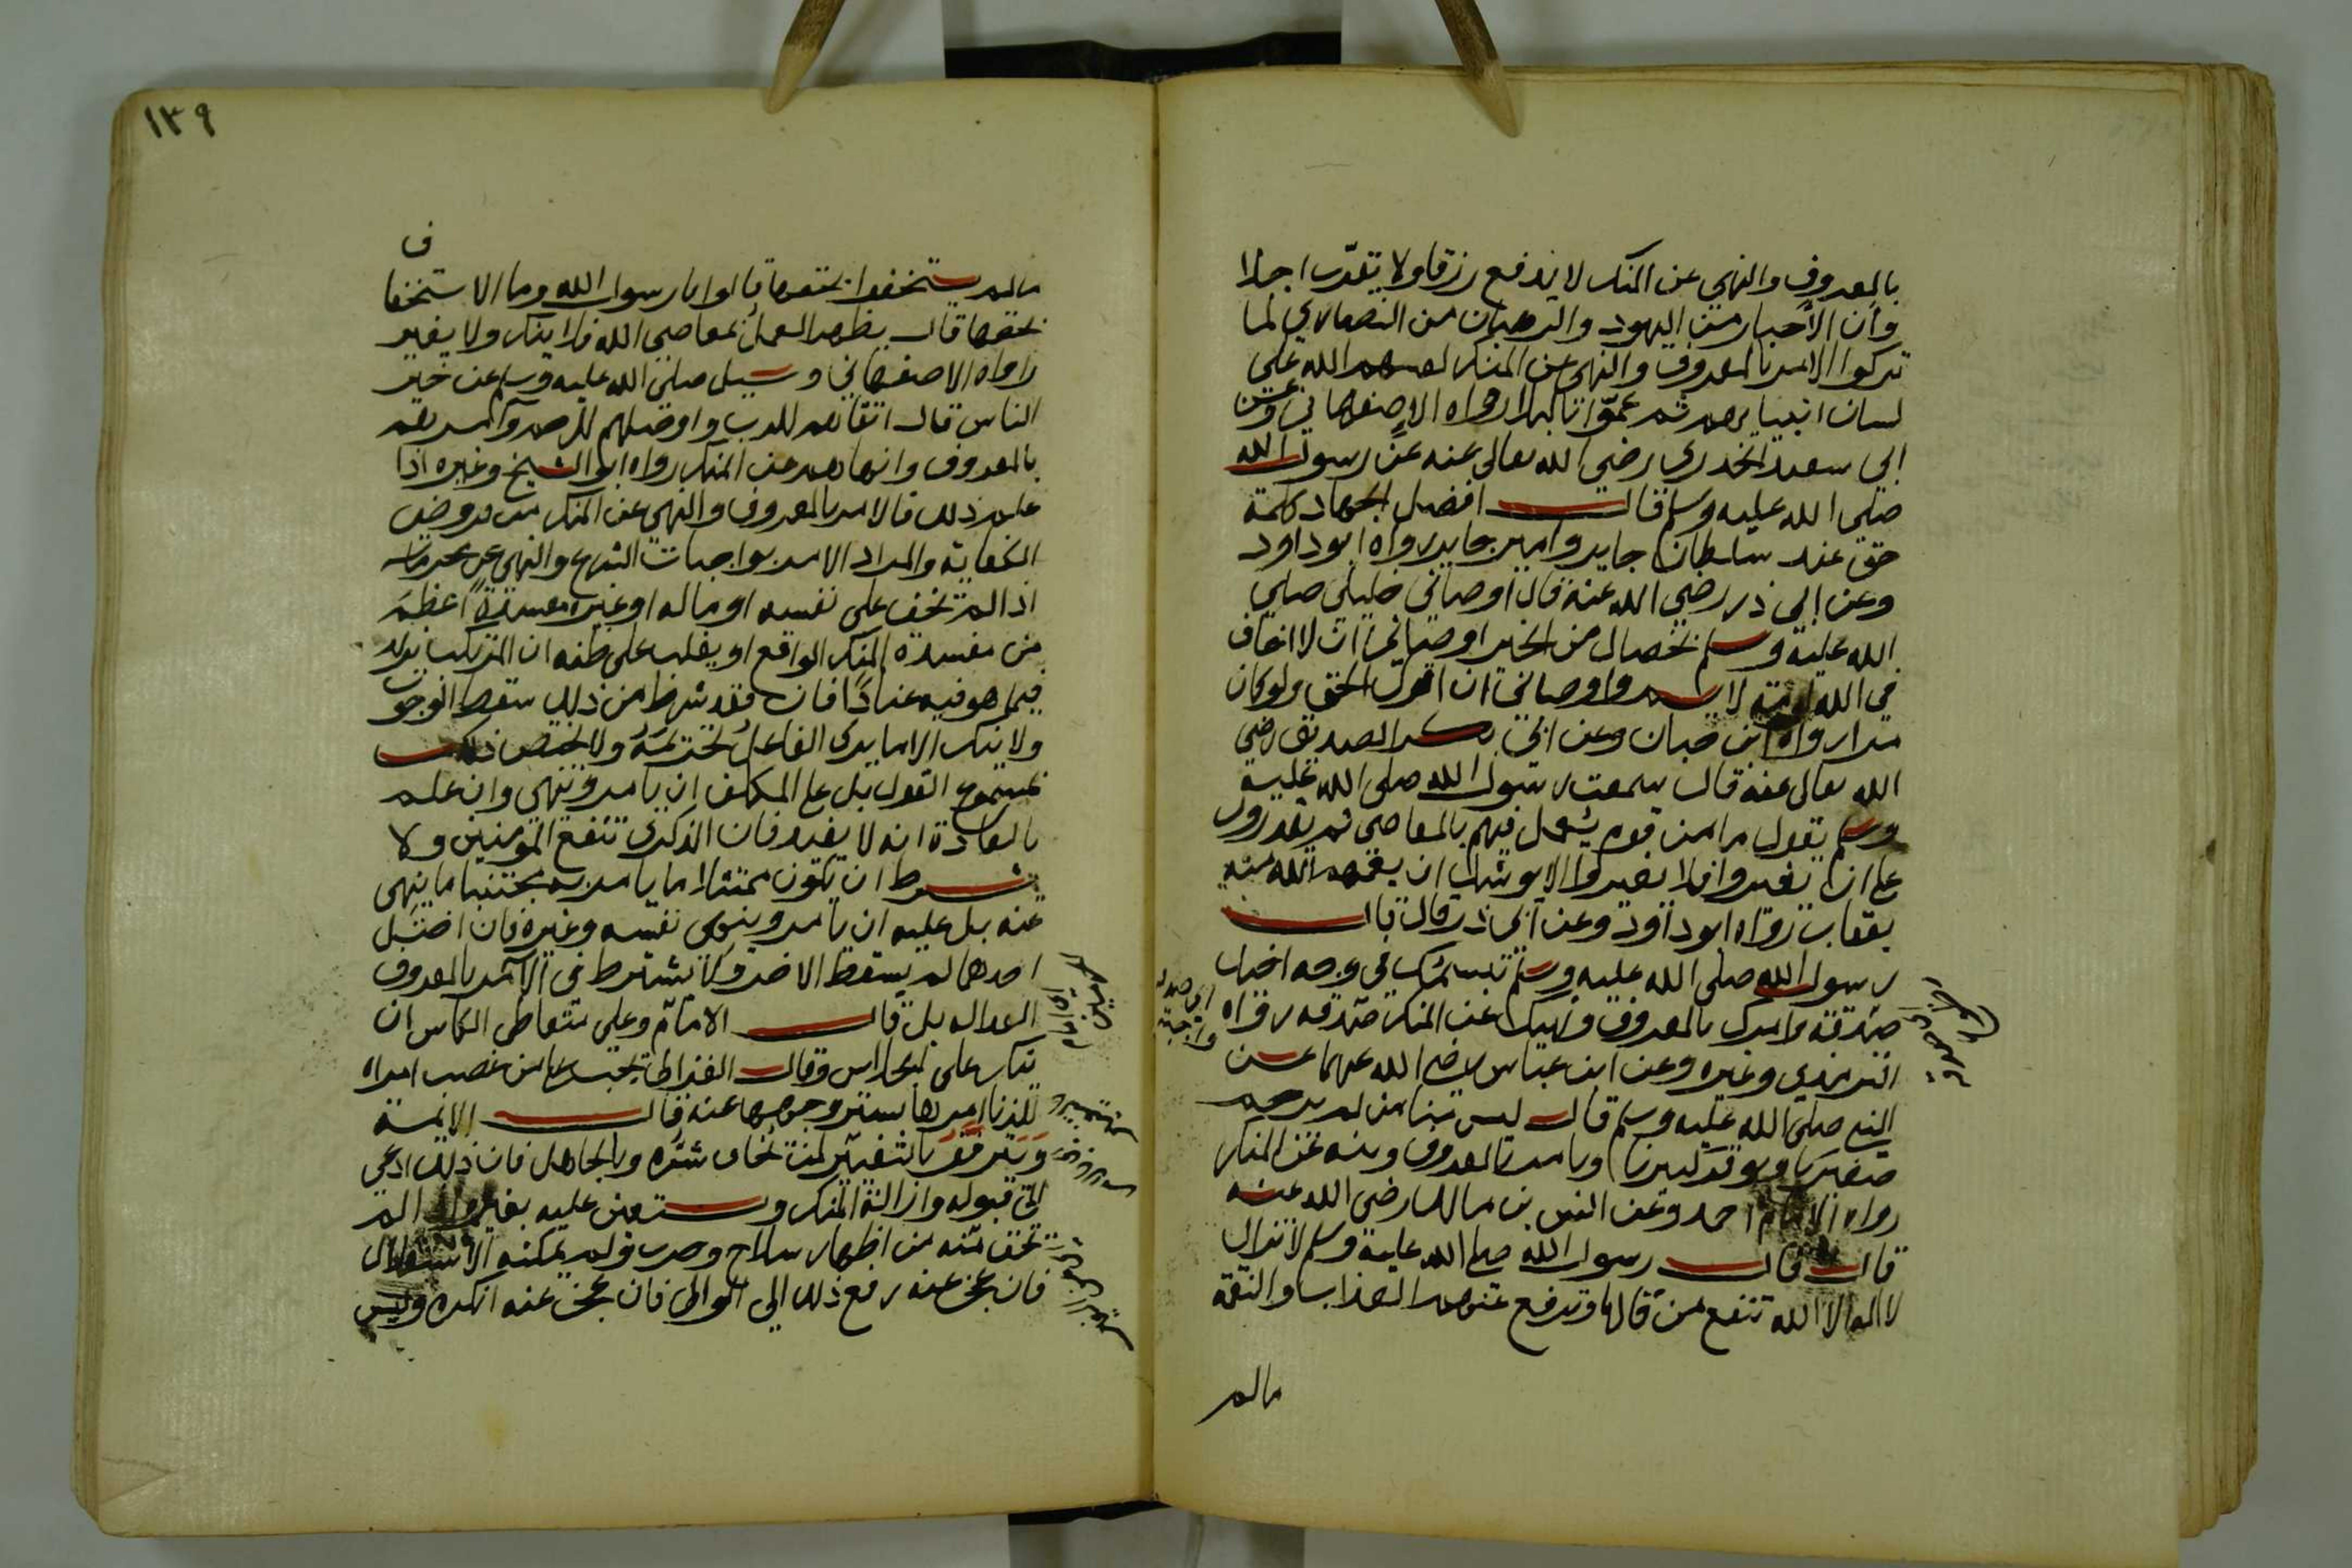 بالمعروف والنهي عن المنكر لا يدفع رزقا ولا يقرّب اجلا
وأن الأحبار من اليهود والرهبان من النصارى لما
تركوا الامر بالمعروف والنهي عن المنكر لعنهم الله على
لسان انبيايهم ثم عمّوا بالبلا رواه الاصفهاني وعن
ابي سعيد الخدري رضي الله تعالى عنه عن رسول الله
صلي الله عليه وسلم قال افضل الجهاد كلمة
حق عند سلطان جاير وامير جاير رواه ابو داود
وعن ابي ذر رضي الله عنه قال اوصاني خليلي صلي
الله عليه وسلم بخصال من الخير اوصاني ان لا اخاف
في الله لومة لايم واوصاني ان اقول الحق ولو كان
مرا رواه ابن حبان وعن ابي بكر الصديق رضي
الله تعالى عنه قال سمعت رسول الله صلى الله عليه
وسلم يقول ما من قوم يعمل فيهم بالمعاصي ثم يقدرون
على ان يغيروا فلا يغيروا الا يوشك ان يعمهم الله منه
بعقاب رواه ابو داود وعن ابي ذر قال قال
رسول الله صلى الله عليه وسلم تبسمك في وجه اخيك
صدقة وامرك بالمعروف ونهيك عن المنكر صدقة رواه
الترمذي وغيره وعن ابن عباس رضي الله عنهما عن
النبي صلى الله عليه وسلم قال ليس منا من لم يرحم
صغيرنا ويوقر كبيرنا ويامر بالمعروف وينه عن المنكر
رواه الامام احمد وعن انس بن مالك رضي الله عنه
قال قال رسول الله صلى الله عليه وسلم لا تزال
لا اله الا الله تنفع من قالها وتدفع عنهم العذاب والنقمة
مالم
١٣٩
ف
مالم يستخفوا بحقها قالوا يا رسول الله وما الاستخفا
بحقها قال يظهر العمل بمعاصي الله فلا ينكر ولا يغير
رواه الاصفهاني وسيل صلى الله عليه وسلم عن خير
الناس قال اتقاهم للرب واوصلهم للرحم وآمرهم
بالمعروف وانهاهم عن المنكر رواه ابو الشيخ وغيره اذا
علم ذلك فالامر بالمعروف والنهي عن المنكر من فروض
الكفاية والمراد الامر بواجبات الشرع والنهي عن محرماته
اذا لم تخف على نفسه او ماله او غيره مفسدة اعظم
من مفسدة المنكر الواقع او يغلب على ظنه ان المرتكب يزيد
فيما هو فيه عنادًا فان فقد شرط من ذلك سقط الوجوب
ولا ينكر الا ما يرى الفاعل تحريمه ولا يختص ذلك
بمسموع القول بل على المكلف ان يامر وينهي وان علم
بالعادة انه لا يفيد فان الذكرى تنفع المؤمنين ولا
يشترط ان يكون ممتثلا ما يامر به مجتنبا ما ينهى
عنه بل عليه ان يامر وينهى نفسه وغيره فان اختل
احدهما لم يسقط الاخر ولا يشترط في الآمر بالمعروف
العداله بل قال الامام وعلى متعاطي الكاس ان
ينكر على الجلاس وقال الغزالي يجب على من غصب امراه
للزنا امرها بستر وجهها عنه قال الايمة
ويترفق بالتغيير لمن يخاف شره وبالجاهل فان ذلك ادعى
الى قبوله وازالة المنكر ويستعين عليه بغيره اذا لم
تخف فتنه من اظهار سلاح وحرب ولم يمكنه الاستقلال
فان عجز عنه رفع ذلك الى الوالى فان عجز عنه انكره وليس